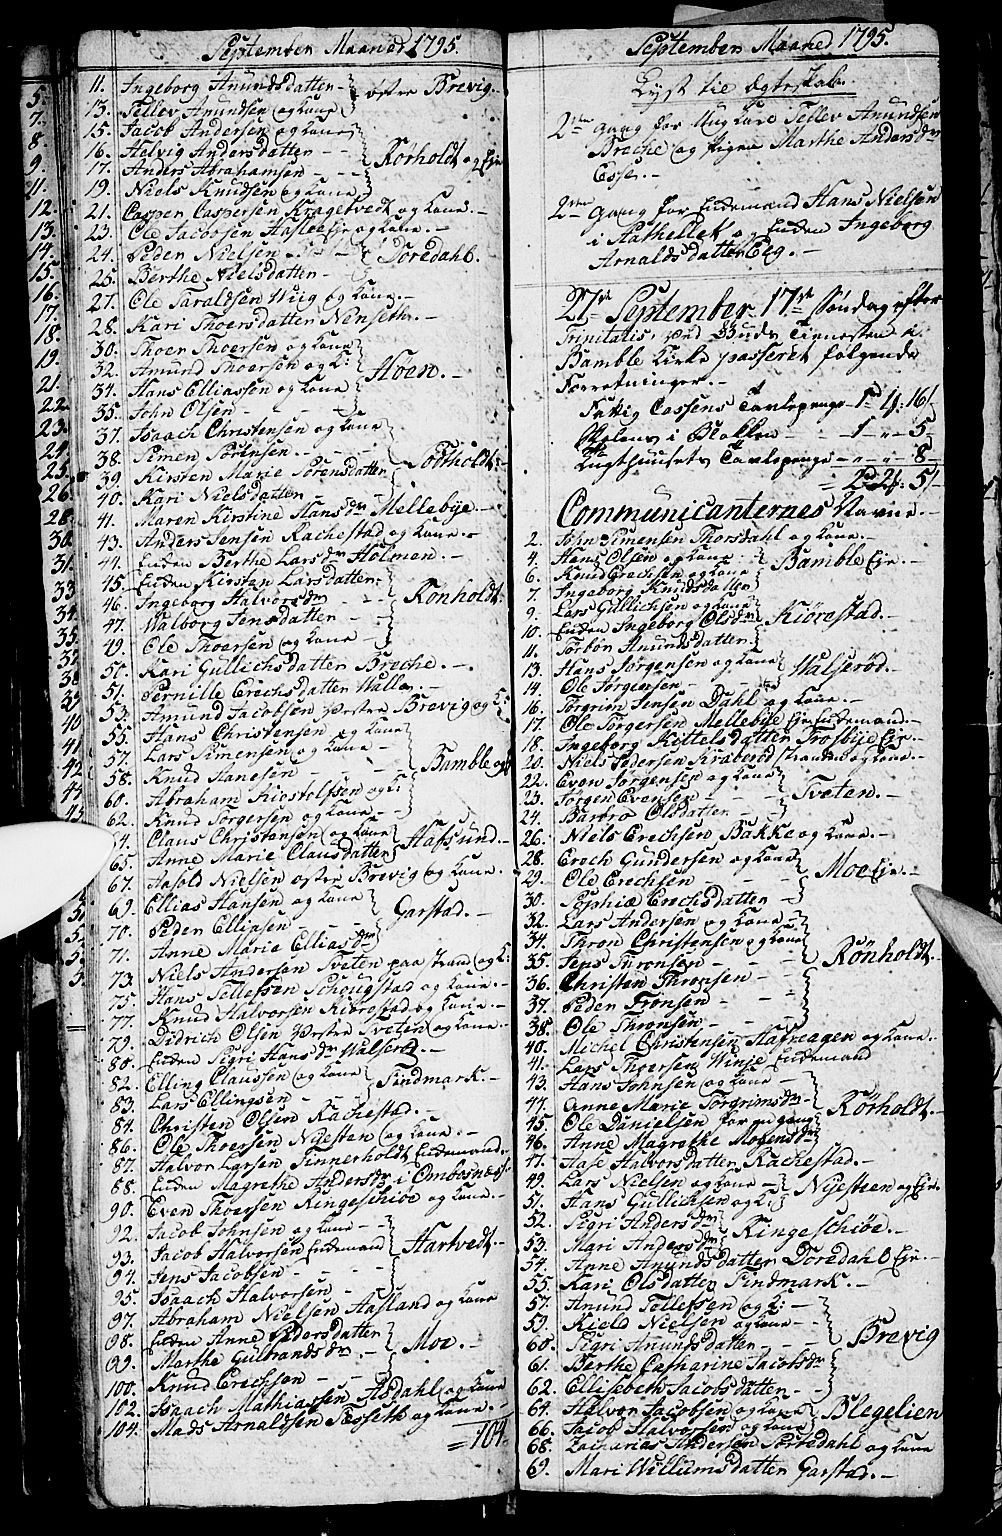 September Maaned 1795.
11. Ingeborg Amundsdatten
østre Brevig.
13. Tellev Amundsen og Kone
15. Jacob Andersen og Kone
16. Helvig Andersdatten
Rørholdt og Eje
17. Anders Abrahamsen
19. Niels Knudsen og Kone
21. Casper Caspersen Kragetvedt og Kone.
23. Ole Jacobsen og Kone.
24. Peder Nielsen
Doredahl.
25. Berthe Nielsdatten
27. Ole Taraldsen Wiig og Kone.
28. Kari Thoersdatten Nenseth.
30. Thoer Thoersen og Kone
32. Amund Thoersen og K:
Hoen.
34. Hans Elliassen og Kone
35. John Olsen
37. Isaach Christensen og Kone
38. Simen Sørensen.
Tortholdt.
39. Kirsten Marie Sørensdatten
40. Kari Nielsdatten
41. Maren Kirstine Hansdr Mellebye.
43. Anders Jensen Rachestad og Kone.
44. Enken Berthe Larsdr Holmen.
45. Enken Kirsten Larsdatten.
46. Ingeborg Halvorsdr
Rønholdt.
47. Walborg Jensdatten
49. Ole Thoersen og Kone
50. Kari Gullichsdatten Breche.
51. Pernille Erechsdatten Walle
53. Amund Jacobsen Vestre Brevig og K:
55. Hans Christensen og Kone
57. Lars Simensen og Kone
58. Knud Hansen
Bamble
60. Abraham og
62. Knud Jørgensen og Kone.
64. Claus Christensen og Kone
Hafsund.
65. Anne Marie Clausdatten
67. Nielsen østre Brevig og Kone.
69. Ellias Hansen og Kone
70. Peder Elliasen
Garstad.
71. Anne Maria Elliasdr
73. Niels Andersen Tveten paa Strand og K:
75. Hans Tellefsen Schougstad og Kone.
77. Knud Halvorsen Kiørestad og Kone.
79. Didrich Olsen Vestre Tveten og Kone.
80. Enken Sigri Hansdr Walserød.
82. Elling Claussen og Kone
Findmark.
83. Lars Ellingsen
84. Christen Olsen Rachestad.
86. Ole Thoersen Nyesten og Kone.
87. Halvor Larsen Tinnerholdt Enkemand.
88. Enken Magrethe Andersdr i Ombosnæss.
90. Even Thoersen Ringeschiøe og Kone.
92. Jacob Johnsen og Kone
93. Jacob Halvorsen Enkemand
Hartvedt.
94. Jens Jacobsen
95. Isaach Halvorsen
97. Abraham Nielsen Aafland og Kone
98. Enken Anne Pedersdatten
Moe.
99. Marthe Gulbrandsdr.
100. Knud Erechsen
102. Isaach Mathiassen Asdahl og Kone
104. Mads Arnoldsen Tesseth og Kone.
=104.
September Maaned 1795.
Lyst til Ægteskab.
2de gang for Ung Karl Tellev Amundsen
Breche og Pigen Marthe Andersdr
Esse.
2den gang for Enkemand Hans Nielsen
i Stathellet og Enken Ingeborg
Arnoldsdatten Eeg.
27de September 17de Søndag efter
Trinitatis, ved Guds Tienesten i
Bamble Kirke passeret følgende
Forretninger.
Fattig Cassens Tavlepenge 1rd 4: 16/
Skolens i Blokken 1 " 5
Tugthuusets Tavlepenge " 8
= 2rd 2: 5/
Communicanternes Navne.
2. John Simensen Thorsdahl og Kone.
4. Hans Olsen og Kone
Bamble Eje.
6. Knud Erechsen og Kone
7. Ingeborg Knudsdatten
9. Lars Gullichsen og Kone
Kiørestad.
10. Enken Ingeborg Olsdr
11. Torbor Amundsdatten
13. Hans Jørgensen og Kone
Walserød.
14. Ole Jørgensen
16. Torgrim Jensen Dahl og Kone.
17. Ole Jørgensen Mellebye Eje Enkemand.
18. Ingeborg Kittelsdatten Trosbye Eje.
20. Niels Pedersen Kraberød Stranden og Kone.
22. Even Jørgensen og Kone
23. Jørgen Evensen
Tveten.
24. Barbro Olsdatten
26. Niels Erechsen Bakke og Kone.
28. Erech Gundersen og Kone
Moe Eje.
29. Ole Erechsen
30. Sophie Erechsdatten
32. Lars Andersen og Kone
34. Thron Christensen og Kone
35. Jens Thronsen
Rønholdt.
36. Christen Thronsen
37. Peder Tronsen
38. Ole Thronsen
40. Michel Christensen Hafneagen og Kone.
41. Lars Thoersen Winje Enkemand
43. Hans Johnsen og Kone
44. Anne Marie Torgrimsdr
Rørholdt.
45. Ole Danielsen før en gang
46. Anne Magrethe Mogensdr
47. Aase Halvorsdatten Rachestad.
49. Lars Nielsen og Kone
Nyesteen og Eje.
51. Hans Gullichsen og K:
52. Sigri Andersdr
Ringeschiøe.
53. Mari Andersdr
54. Anne Amundsdatten Doredahl Eje.
55. Kari Olsdatten Findmark.
57. Amund Tellefsen og K:
59. Kield Nielsen og Kone
60. Sigri Amundsdatten
Brevig
61. Berthe Catharine Jacobsdr
62. Ellisebeth Jacobsdatten
64. Halvor Jacobsen og Kone
Blegelien
66. Jacob Halvorsen og Kone
68. Zacharias Andersen Tortedahl og Kone
69. Mari Willumsdatten Garstad.